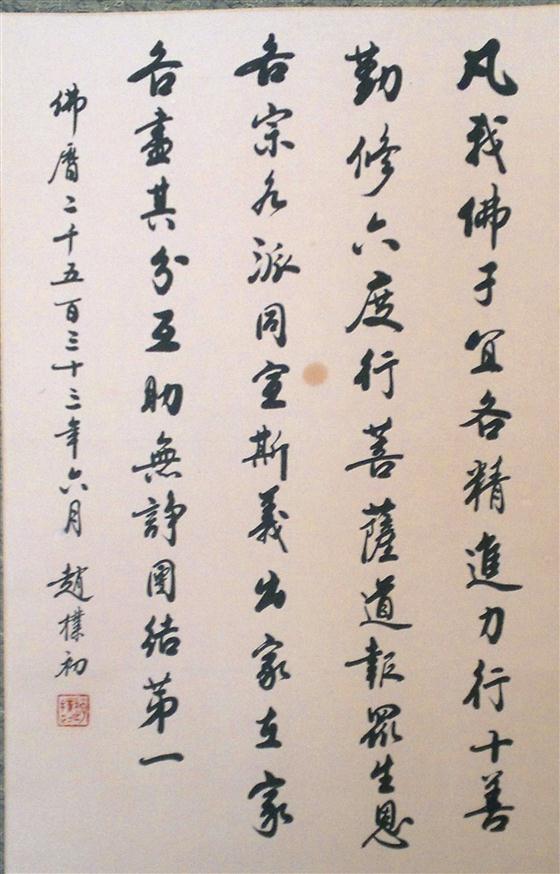 凡我佛子宜各精進力行十善
勤修六度行菩薩道報眾生恩
各宗各派同宣斯義出家在家
各盡其分互助無諍團結第一
佛曆二千五百三十三年六月 趙樸初